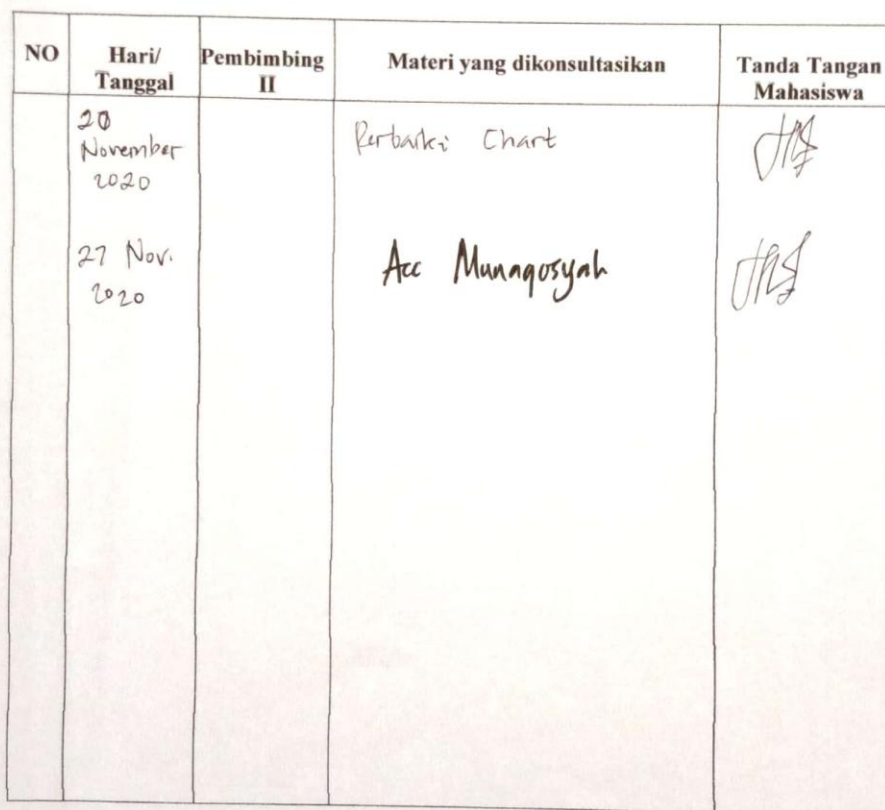 NO Hari/ Tanggal Pembimbing II Materi yang dikonsultasikan Tanda Tangan Mahasiswa
20 November 2020 Perbaiki Chart
27 Nov. 2020 Acc Munaqosyah